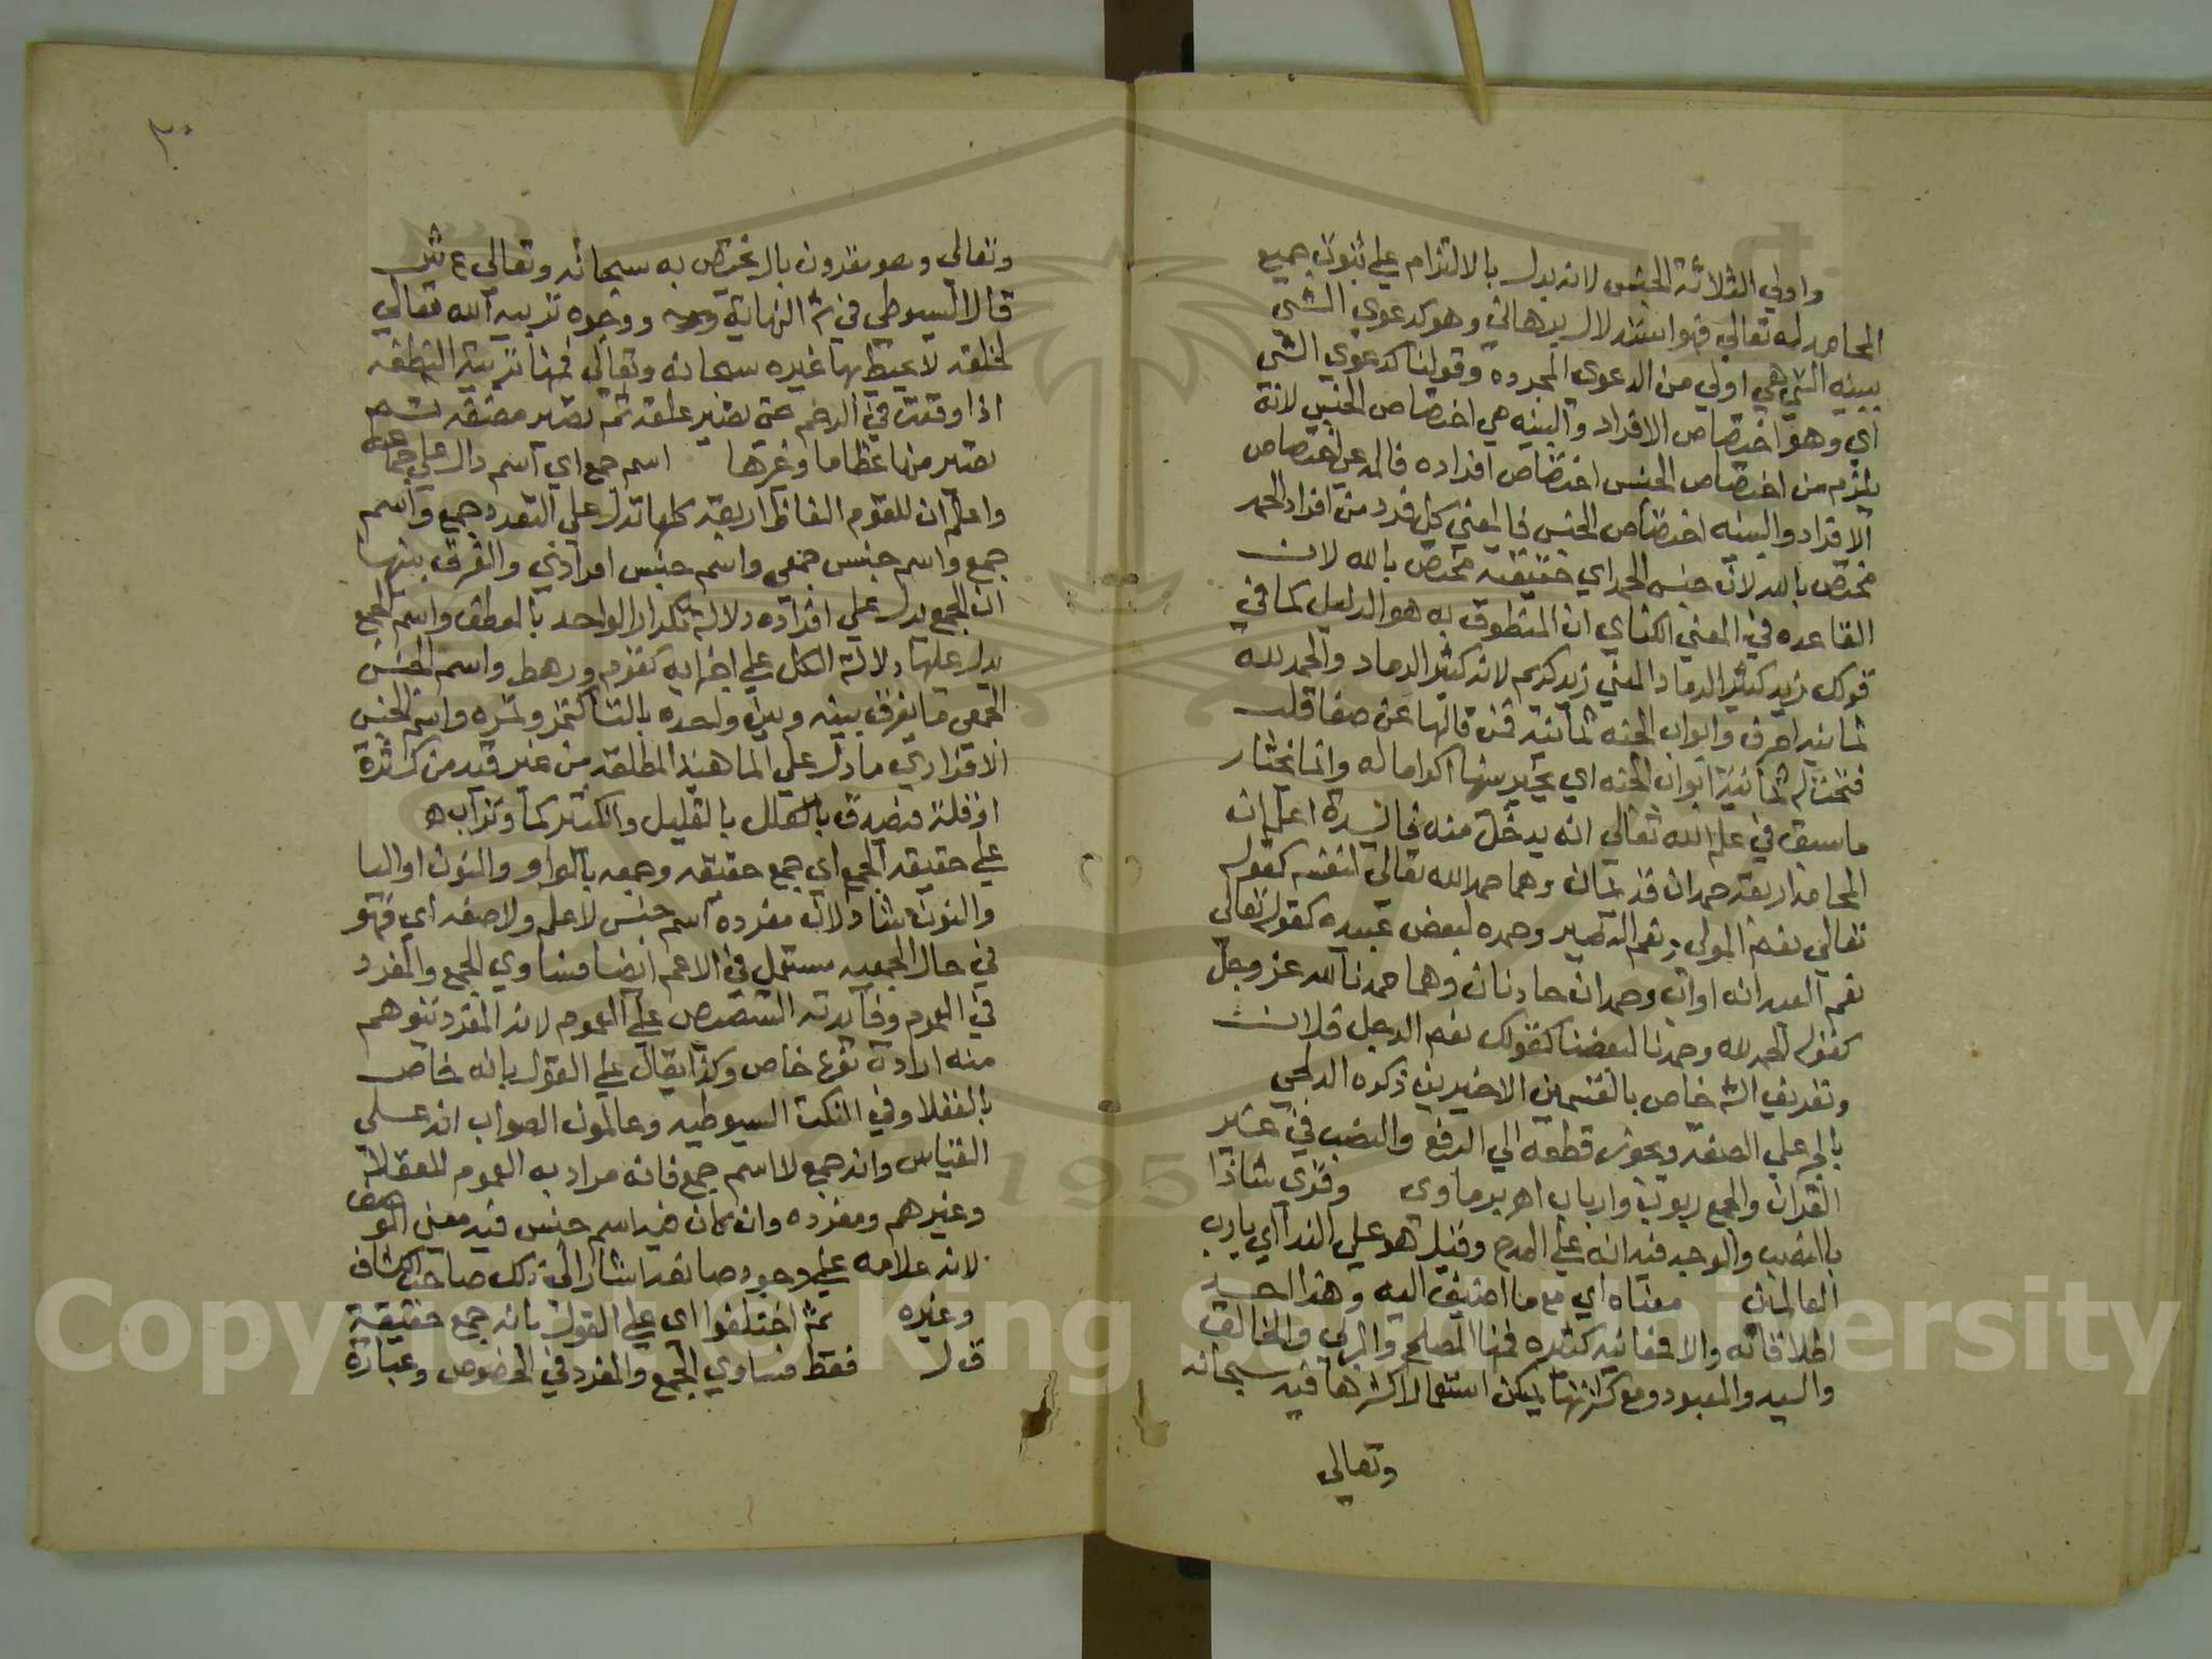 واولي الثلاثة الجنس لانه يدل بالالتزام علي ثبوت جميع
المحامد له تعالي فهو استدلال برهاني وهو كدعوي الشي
ببينه التي هي اولي من الدعوي المجرده وقولنا كدعوي الشي
اي وهو اختصاص الافراد والبينه هي اختصاص الجنس لانه
يلزم من اختصاص الجنس اختصاص افراده فالمدعي اختصاص
الافراد والبينه اختصاص الجنس فالمعني كل فرد من افراد الحمد
مختص بالله لان جنس الحمد اي حقيقته مختص بالله لان
القاعده في المعني الكناي ان المنطوق به هو الدليل كما في
قولك زيد كثير الرماد المعني زيد كريم لانه كثير الرماد والحمد لله
ثمانيه احرف وابواب الجنه ثمانيه فمن قالها عن صفا قلب
فتحت له ثمانية ابواب الجنه اي يخير بينها اكراما له وانما يختار
ما سبق في علم الله تعالي انه يدخل منه فايدة اعلم ان
المحامد اربعه حمدان قديمان وهما حمد الله تعالي لنفسه كقوله
تعالي نعم المولي ونعم النصير وحمده لبعض عبيده كقوله تعالي
نعم العبد انه اواب وحمدان حادثان وهما حمدنا لله عز وجل
كقوله الحمد لله وحمدنا لبعضنا كقولك نعم الرجل فلان
وتعريف الش خاص بالقسمين الاخيرين ذكره الدلجي
بالجر علي الصفه ويجوز قطعه الي الرفع والنصب في غير
القران والجمع ربوب وارباب اهر برماوي وقري شاذا
بالنصب والوجه فيه انه علي المدح وقيل هو علي الندا اي يا رب
العالمين معناه اي مع ما اضيف اليه وهذا احد
اطلاقاته والا فمعانيه كثيره فمنها المصلح والمربي والخالق
والسيد والمعبود ومع كثرتها يمكن استعمال اكثرها فيه سبحانه
وتعالي
٣٠
وتعالي وهو مقرون بال يختص به سبحانه وتعالي ع ش
قال السيوطي في ش النهاية ووجوه تربيه الله تعالي
لخلقه لا يحيط بها غيره سبحانه وتعالي فمنها تربية النطفه
اذا وقعت في الرحم حتي تصير علقه ثم تصير مضغه ثم
تصير منها عظاما وغيرها اسم جمع اي اسم دال علي جماعه
واعلم ان للقوم الفاظا اربعة كلها تدل علي التعدد جمع واسم
جمع واسم جنس جمعي واسم جنس افرادي والفرق بينها
ان الجمع يدل علي افراده دلالة تكرار الواحد بالعطف واسم الجمع
يدل عليها دلالة الكل علي اجزايه كقوم ورهط واسم الجنس
الجمعي ما يفرق بينه وبين واحده بالتا كتمر وتمره واسم الجنس
الافرادي ما دل علي الماهية المطلقه من غير قيد من كثرة
او قلة فيصدق بالقليل والكثير كما وتراب ه
علي حقيقه الجمع اي جمع حقيقه وجمعه بالواو والنون او اليا
والنون شاذ لان مفرده اسم جنس لا علم ولا صفه اي فهو
في حال الجمعيه مستعمل في الاعم ايضا فساوي الجمع والمفرد
في العموم وفايدته التنصيص علي العموم لانه المفرد يتوهم
منه ارادة نوع خاص وكذا يقال علي القول بانه خاص
بالعقلا وفي النكت السيوطيه وعالمون الصواب انه علي
القياس وانه جمع لا اسم جمع فانه مراد به العموم للعقلا
وغيرهم ومفرده وان كان غير اسم جنس فيه معني الوصف
لانه علامه علي وجود صانعه اشار الي ذلك صاحب الكشاف
وغيره ثم اختلفوا اي علي القول بانه جمع حقيقة
قوله فقط فساوي الجمع والمفرد في الخصوص وعبارة
Copyright © King Saud University
1957